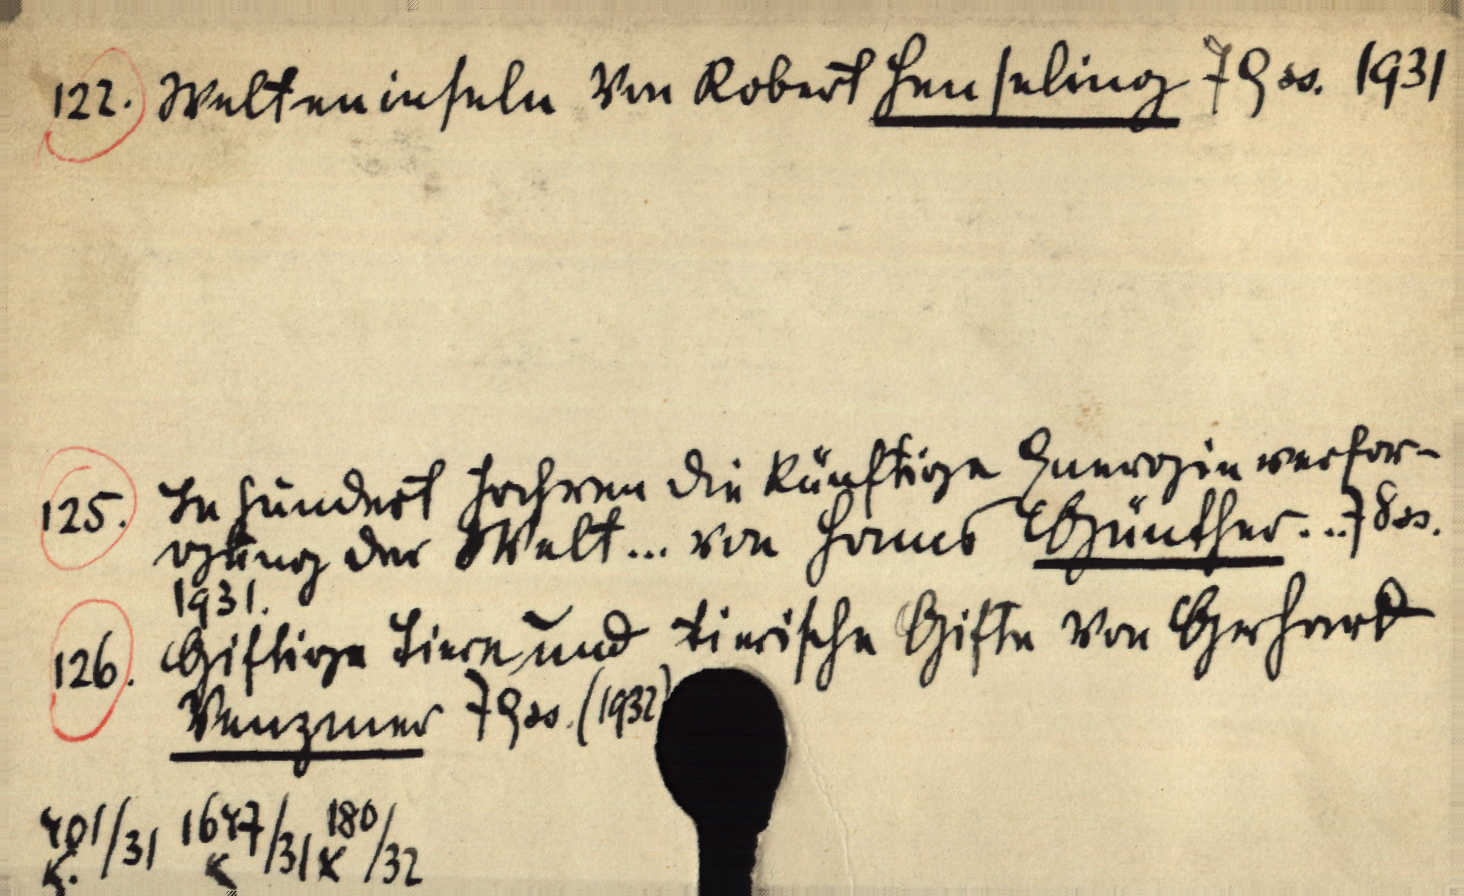 122. Welteninseln von Robert Henseling 79 S. 1931
125. In hundert Jahren die künftige Energieversor-
gung der Welt... von Hanns Günther... 78 S.
1931.
126. Giftige Tiere und tierische Gifte von Gerhard
Venzmer 79 S. (1932)
401/31 1647/31 180/32
K. K K